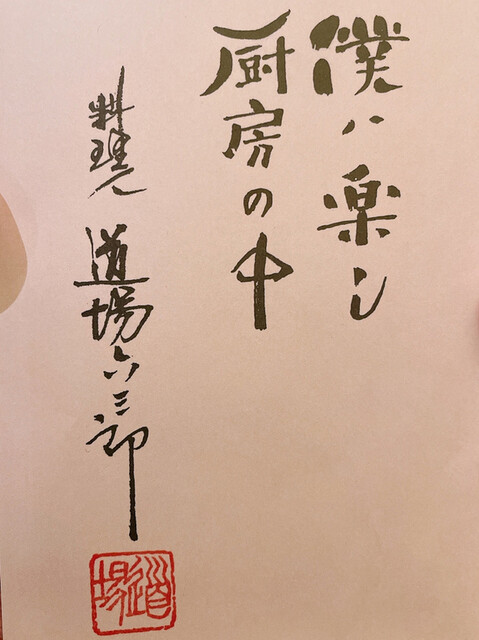 僕ハ楽し
厨房の中
料理人 道場六三郎
道場